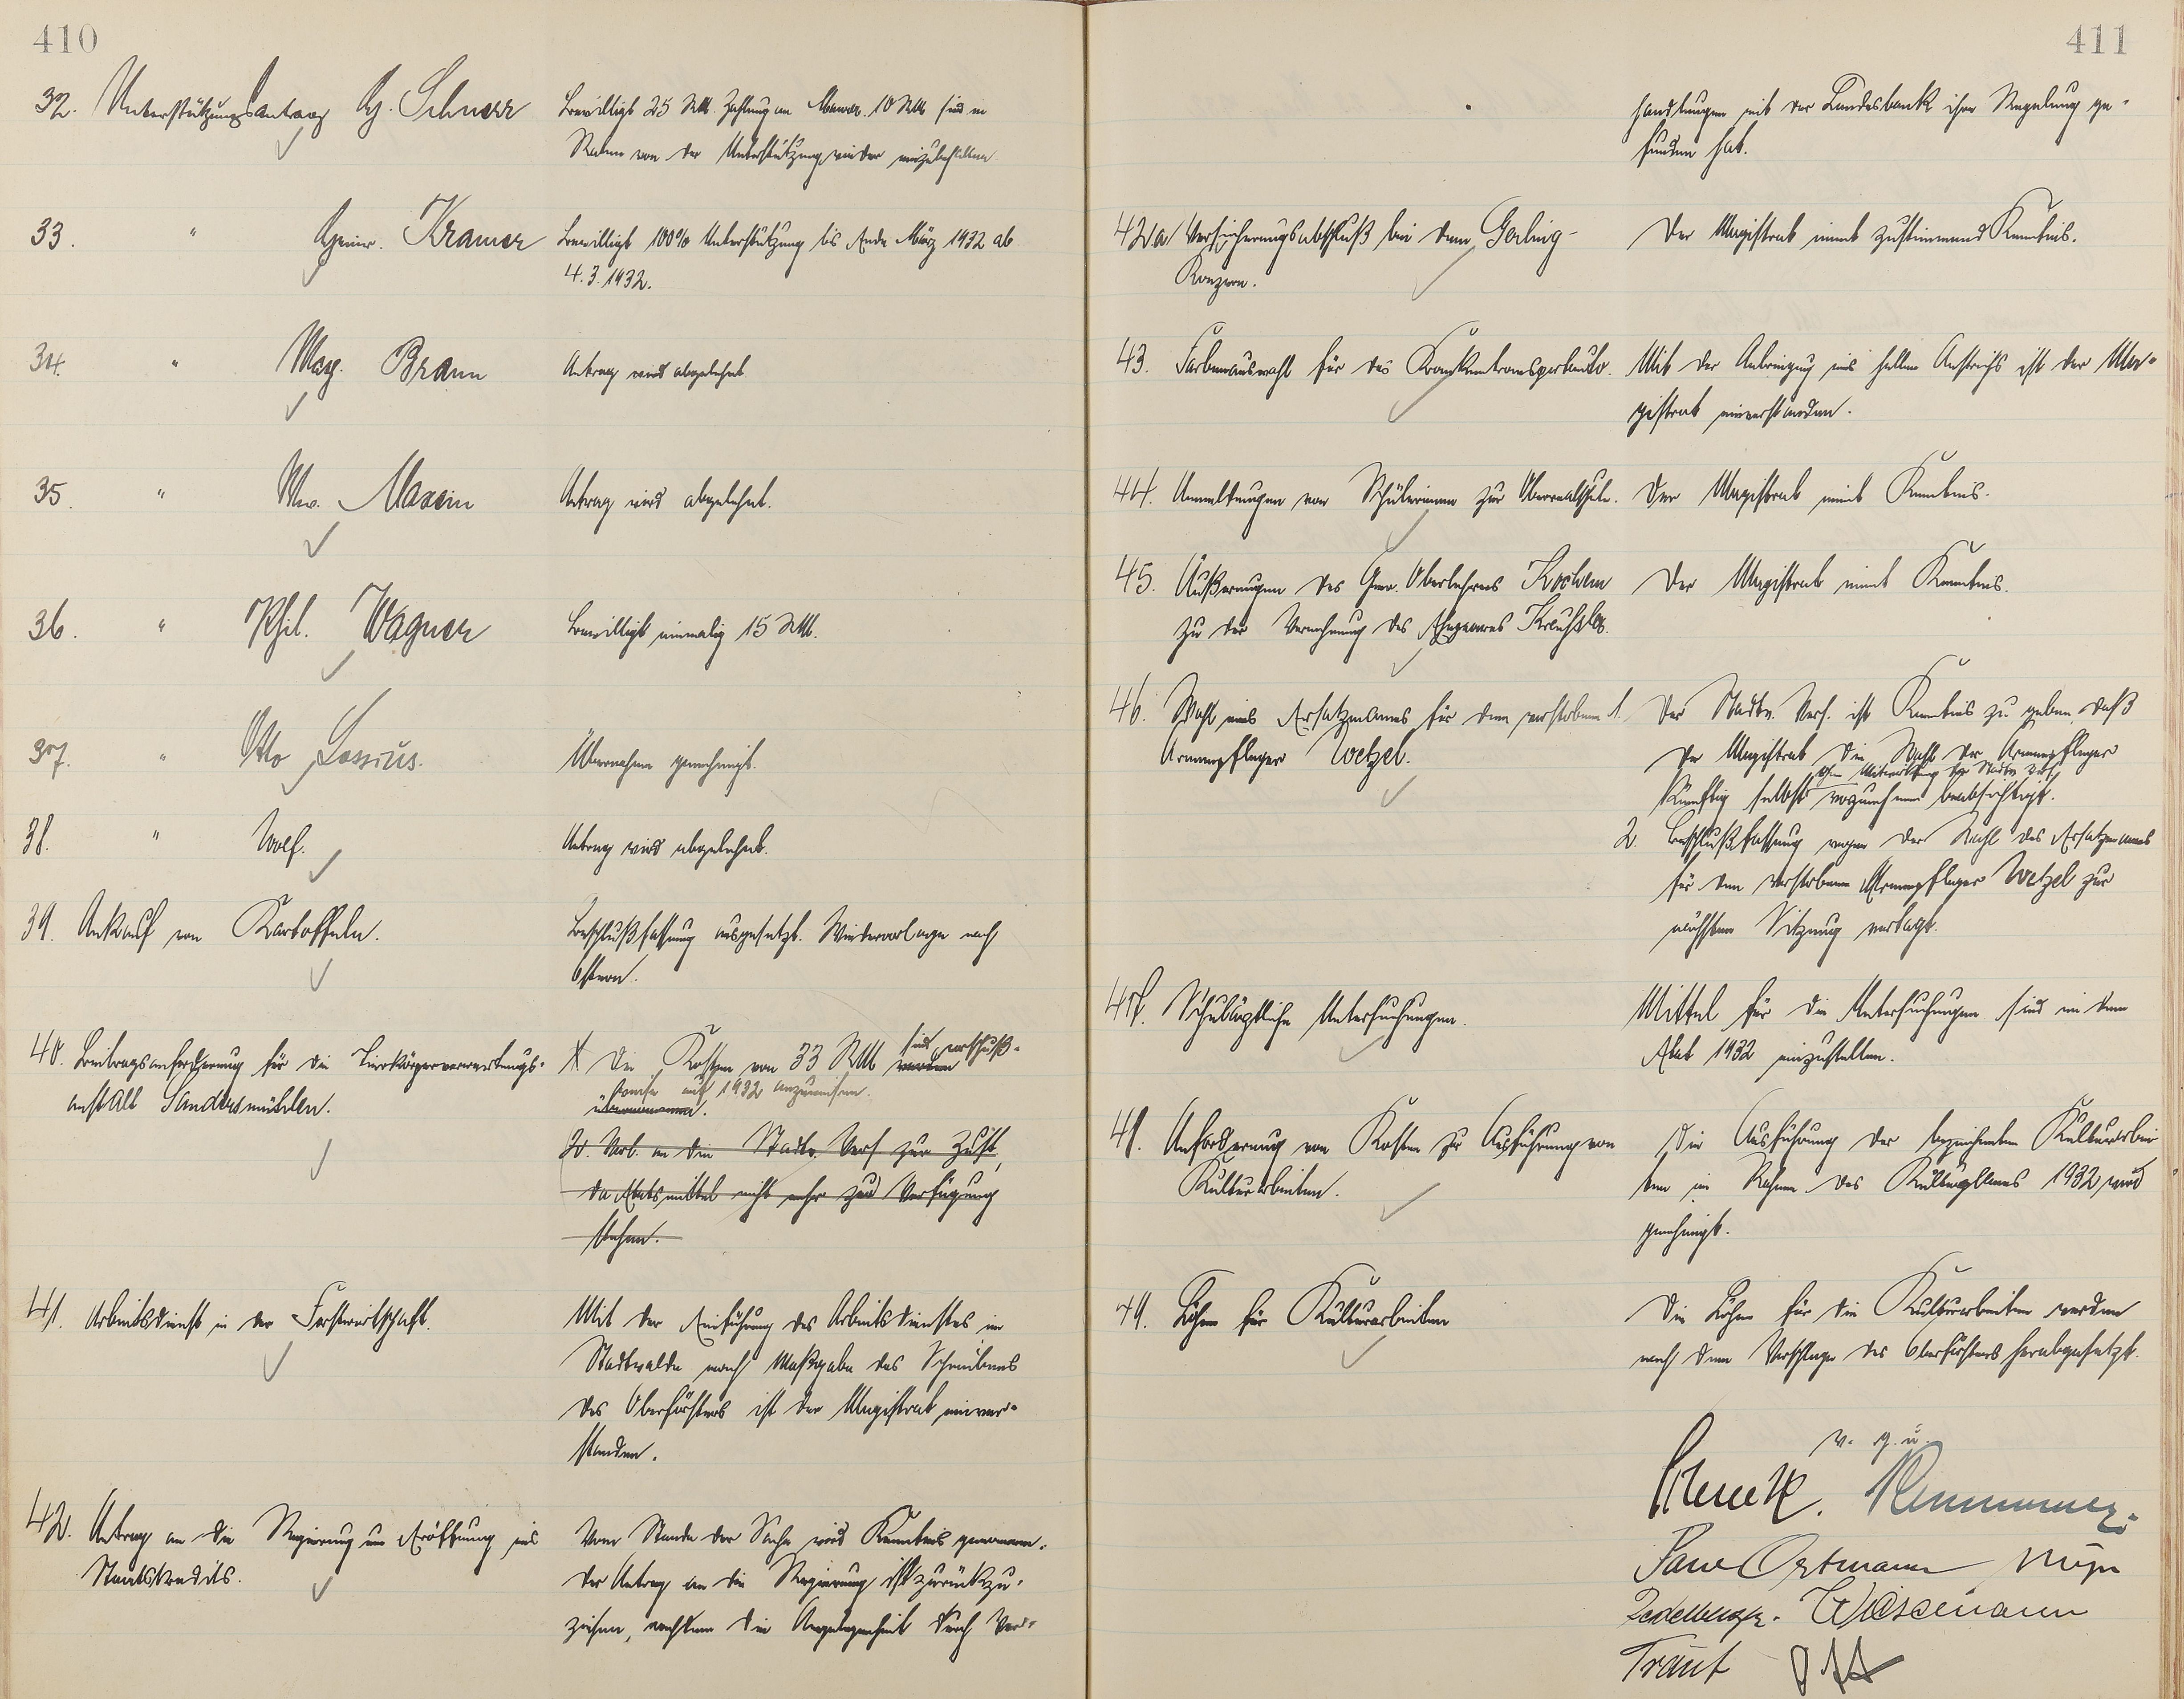 410
32. Unterstützungsantrag G. Schnorr
Bewilligt 25 RM. Zahlung an 10 RM sind in
Raten von der Unterstützung wieder einzubehalten.
33. " Heinr. Kramer
Bewilligt 100% Unterstützung bis Ende März 1932 ab
4.3.1932.
34. " Marg. Braun
Antrag wird abgelehnt.
35. " Ww. Maxein
Antrag wird abgelehnt.
36. " Phil. Wagner
Bewilligt einmalig 15 RM.
37. " Otto Lossius.
Übernahme genehmigt.
38. " Wolf.
Antrag wird abgelehnt.
39. Ankauf von Kartoffeln.
Beschlußfassung ausgesetzt. Wiedervorlage nach
Ostern.
40. Beitragsanforderung für die Tierkörperverwertungs-
anstalt Sandersmühlen.
1. Die Kosten von 33 RM werden sind vorschuß-
übernommen. weise auf 1932 anzuweisen.
2. Vorl. an die Stadtv. Vers. zur Zust.,
da Etatsmittel nicht mehr zur Verfügung
stehen.
41. Arbeitsdienst in der Forstwirtschaft.
Mit der Einführung des Arbeitsdienstes im
Stadtwalde nach Maßgabe des Schreibens
des Oberförsters ist der Magistrat einver-
standen.
42. Antrag an die Regierung um Eröffnung eines
Staatskredits.
Vom Stande der Sache wird Kenntnis genommen.
Der Antrag an die Regierung ist zurückzu-
ziehen, nachdem die Angelegenheit durch Ver-
411
handlungen mit der Landesbank ihre Regelung ge-
funden hat.
42a Versicherungsabschluß bei dem Gerling-
Konzern.
Der Magistrat nimmt zustimmend Kenntnis.
43. Farbenauswahl für das Krankentransportauto.
Mit der Anbringung eines hellen Anstrichs ist der Ma-
gistrat einverstanden.
44. Anmeldungen von Schülerinnen zur Oberrealschule.
Der Magistrat nimmt Kenntnis.
45. Äußerungen des Gew. Oberlehrers Kochem
zu der Vernehmung des
Der Magistrat nimmt Kenntnis.
46. Wahl eines Ersatzmannes für den verstorbenen
Armenpfleger Wetzel.
1. Der Stadtv. Vers. ist Kenntnis zu geben, daß
der Magistrat die Wahl der Armenpfleger
ohne Mitwirkung der Stadtv. Vers.
künftig selbst vorzunehmen beabsichtigt.
2. Beschlußfassung wegen der Wahl des Ersatzmannes
für den verstorbenen Armenpfleger Wetzel zur
nächsten Sitzung vertagt.
47. Schulärztliche Untersuchungen.
Mittel für die Untersuchungen sind in den
Etat 1932 einzustellen.
48. Anforderung von Kosten zur Ausführung von
Kulturarbeiten.
Die Ausführung der bezeichneten Kulturarbei
ten im Rahmen des Kulturplanes 1932 wird
genehmigt.
49. Löhne für Kulturarbeiten
Die Löhne für die Kulturarbeiten werden
nach dem Vorschlage des Oberförsters herabgesetzt.
v. g. u.
Ortmann
Wissemann
Traut